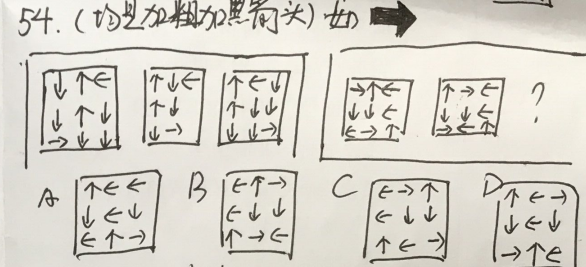 54.(均是加粗加黑箭头)如 ➡
↓↑← ↑↓← ↑←↓ →↑← ↑→← ?
↓↑↓ ↑↓ ↑↓↓ ↓↓← ↓↓←
→↓↓ ↓→ ↓↓→ ←→↑ →←↑
A ↑←← B ←↑→ C ←→↑ D ↑←→
↓←↓ ←↓↓ ←↓↓ ↓←↓
←↑→ ↑→← ↑←→ →↑←